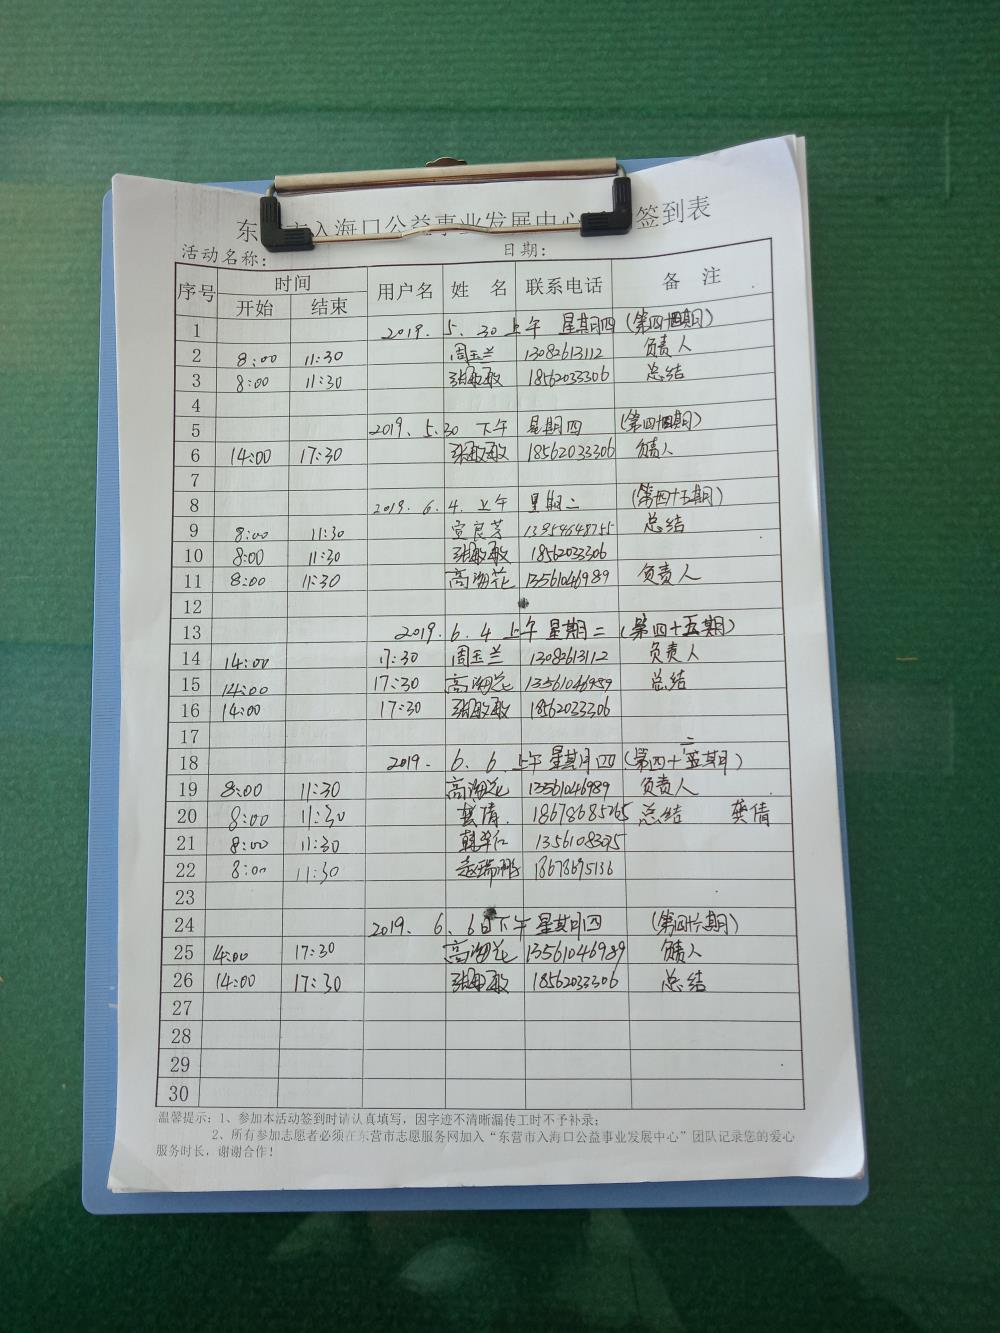 东 市入海口公益事业发展中心 签到表
活动名称： 日期：
序号 时间 用户名 姓 名 联系电话 备 注
开始 结束
1 2019. 5. 30 上午 星期四 (第四十四期)
2 8:00 11:30 周玉兰 13082613112 负责人
3 8:00 11:30 张敏敏 18562033306 总结
4
5 2019. 5.30 下午 星期四 (第四十四期)
6 14:00 17:30 张敏敏 18562033306 负责人
7
8 2019. 6. 4. 上午 星期二 (第四十五期)
9 8:00 11:30 宣良芳 13954648755 总结
10 8:00 11:30 张敏敏 18562033306
11 8:00 11:30 高海花 13561046989 负责人
12
13 2019. 6. 4 上午 星期二 (第四十五期)
14 14:00 17:30 周玉兰 13082613112 负责人
15 14:00 17:30 高海花 13561046989 总结
16 14:00 17:30 张敏敏 18562033306
17
18 2019. 6. 6 上午 星期四 (第四十五期)
19 8:00 11:30 高海花 13561046989 负责人
20 8:00 11:30 龚倩. 18678685265 总结 龚倩
21 8:00 11:30 13561083025
22 8:00 11:30 赵瑞鹏 18678695136
23
24 2019. 6. 6日下午 星期四 (第四十六期)
25 14:00 17:30 高海花 13561046989 负责人
26 14:00 17:30 张敏敏 18562033306 总结
27
28
29
30
温馨提示：1、参加本活动签到时请认真填写，因字迹不清晰漏传工时不予补录；
2、所有参加志愿者必须在东营市志愿服务网加入“东营市入海口公益事业发展中心”团队记录您的爱心
服务时长，谢谢合作！